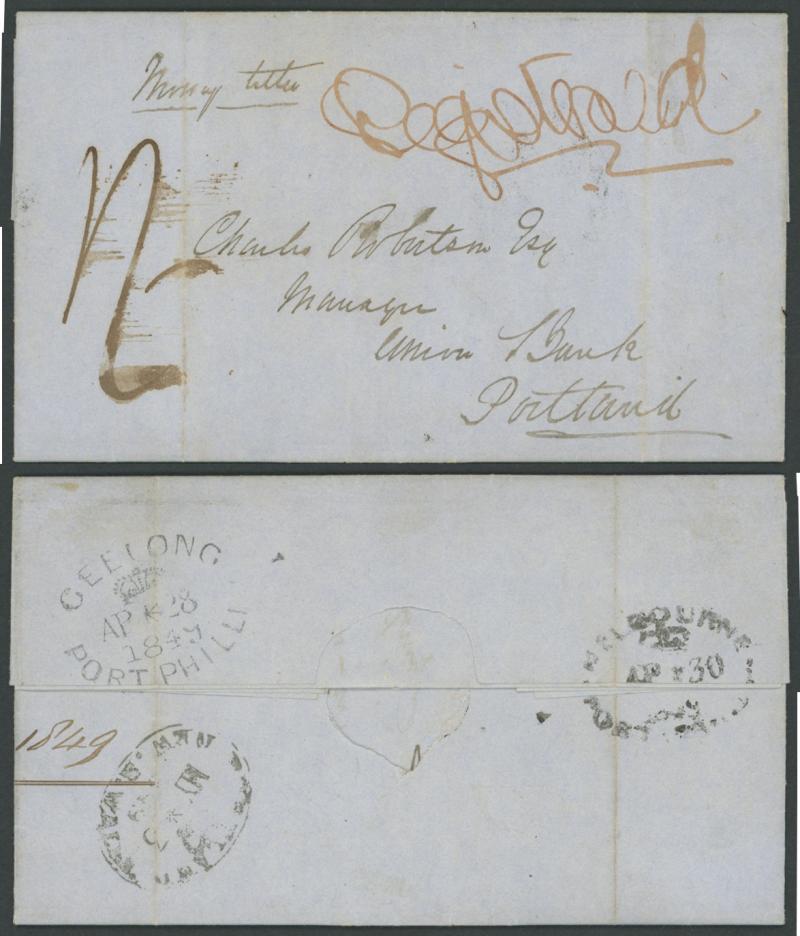 Money letter
Registered
Charles Robertson Esq
Manager
Union Bank
Portland
GEELONG
AP 28
1849
PORT PHILLI
MELBOURNE
AP 30
PORT
1849
NEW